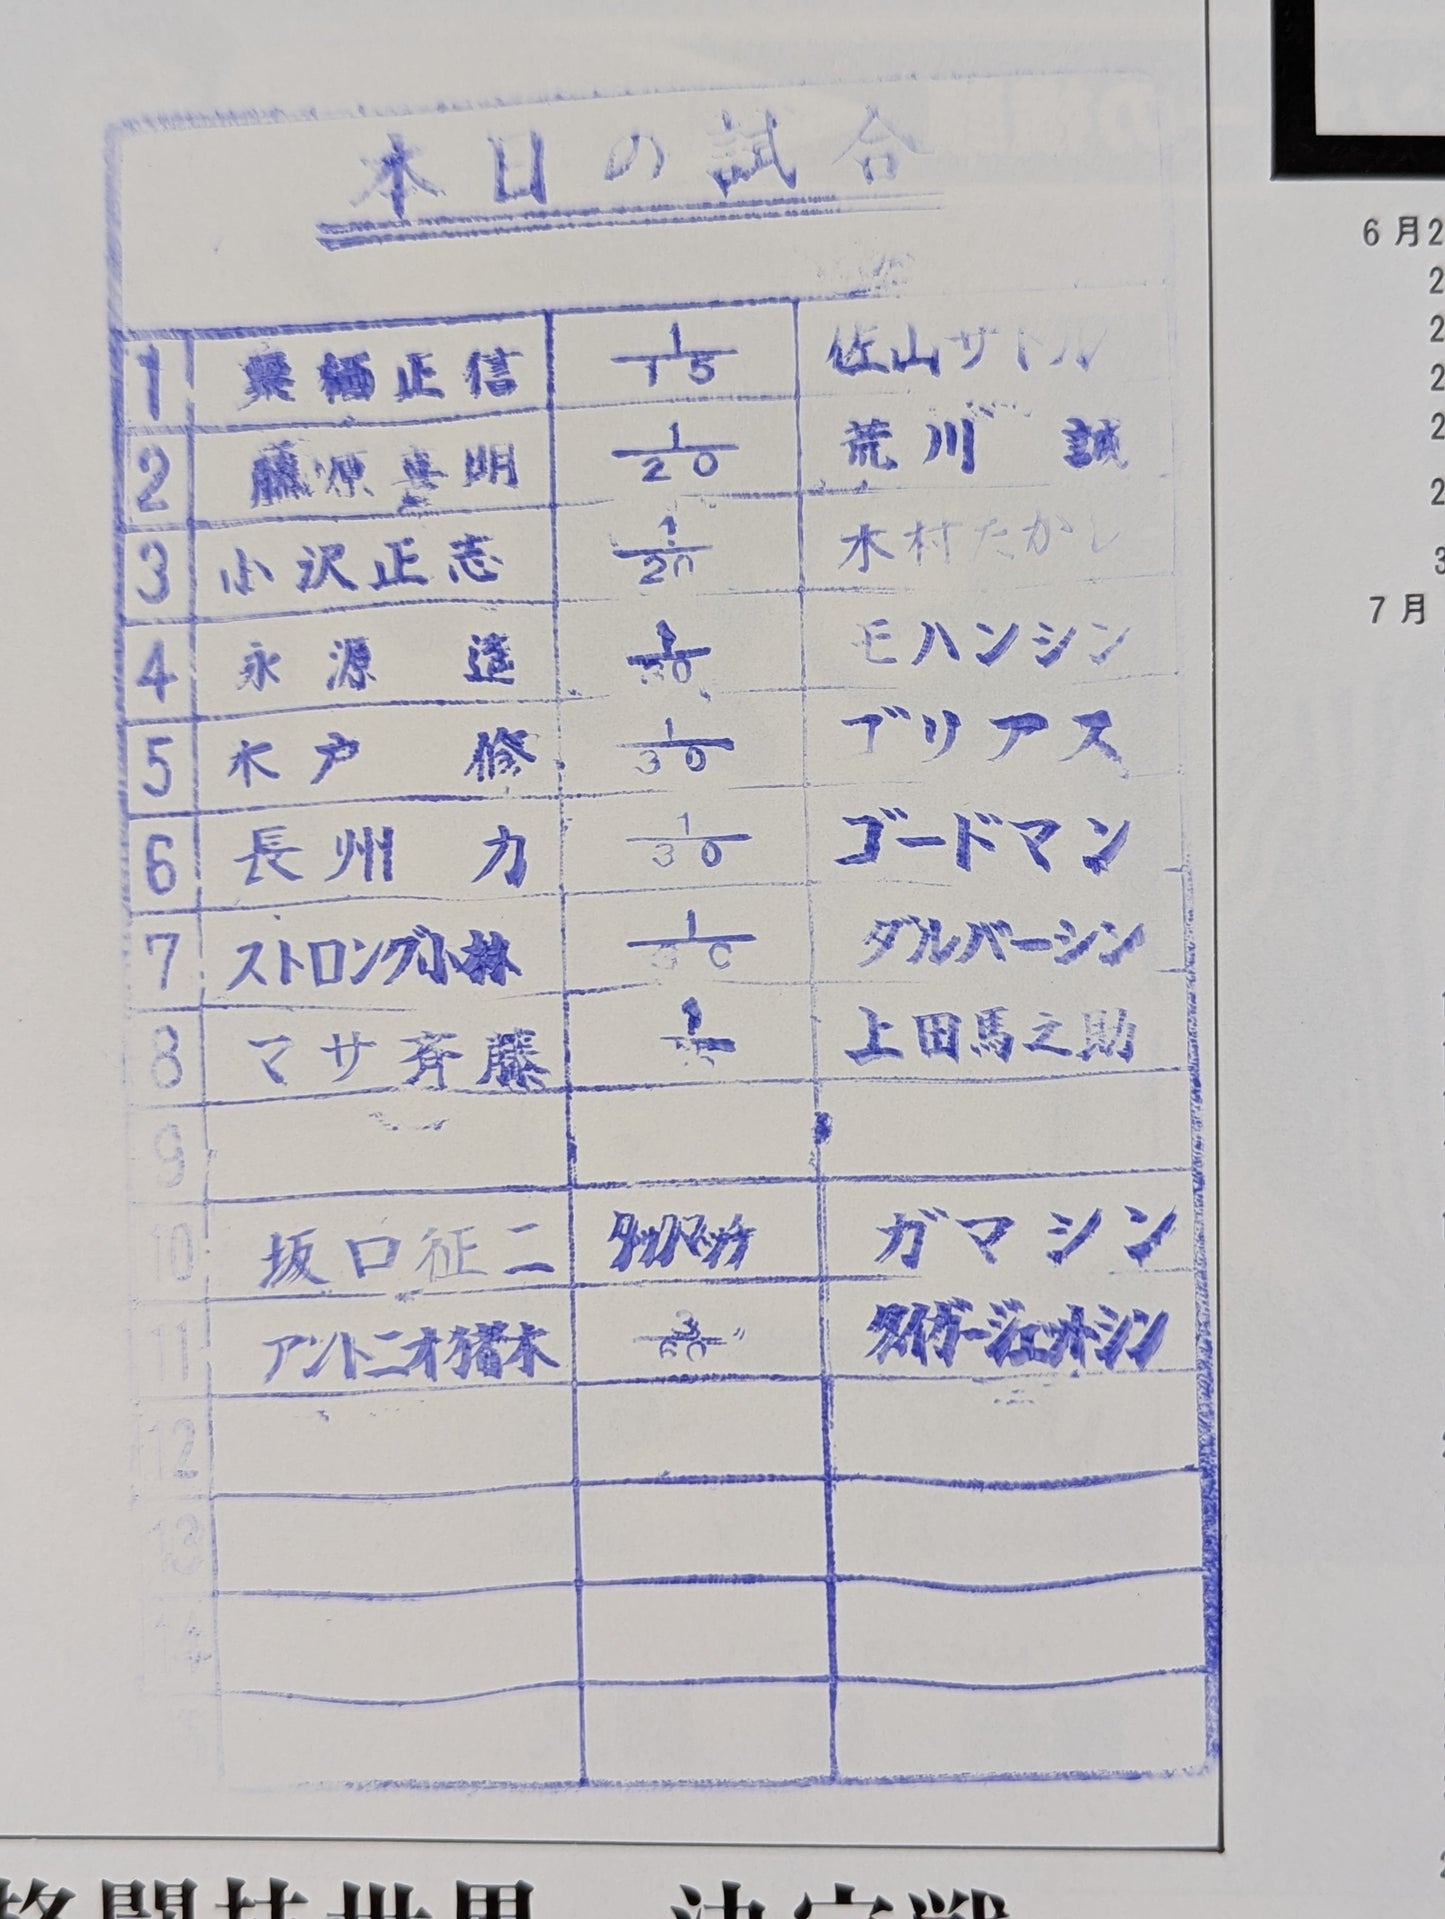 本日の試合
1 栗栖正信 1/15 佐山サトル
2 藤原喜明 1/20 荒川 誠
3 小沢正志 1/20 木村たかし
4 永源 遥 1/30 モハンシン
5 木戸 修 1/30 ゴリアス
6 長州 力 1/30 ゴードマン
7 ストロング小林 1/30 ダルバーシン
8 マサ斉藤 1/ 上田馬之助
9
10 坂口征二 タッグマッチ ガマシン
11 アントニオ猪木 3/60 タイガージェットシン
12
13
14
6月2
2
2
2
2
2
3
7月
格闘技世界 決定戦